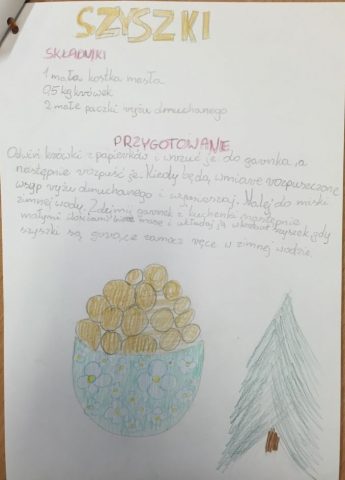 SZYSZKI
SKŁADNIKI
1 mała kostka masła
0,5 kg krówek
2 małe paczki ryżu dmuchanego
PRZYGOTOWANIE
Odwiń krówki z papierków i wrzuć je do garnka, a
następnie rozpuść je. Kiedy będą w miarę rozpuszczone
wsyp ryżu dmuchanego i wymieszaj. Nalej do miski
zimnej wody. Zdejmij garnek z kuchenki następnie
małymi ilościami bierz masę i układaj ją w kształt szyszek, gdy
szyszki są gorące zamocz ręce w zimnej wodzie.